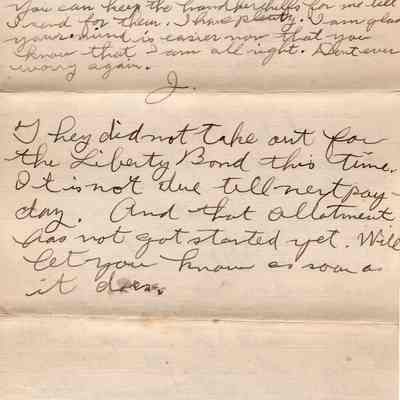 You can keep the handkerchiefs for me till
I send for them. I have plenty. I am glad
your mind is easier now that you
know that I am all right. Dont ever
worry again.
J.
They did not take out for
the Liberty Bond this time.
It is not due till next pay-
day. And that allotment
has not got started yet. Will
let you know as soon as
it does.